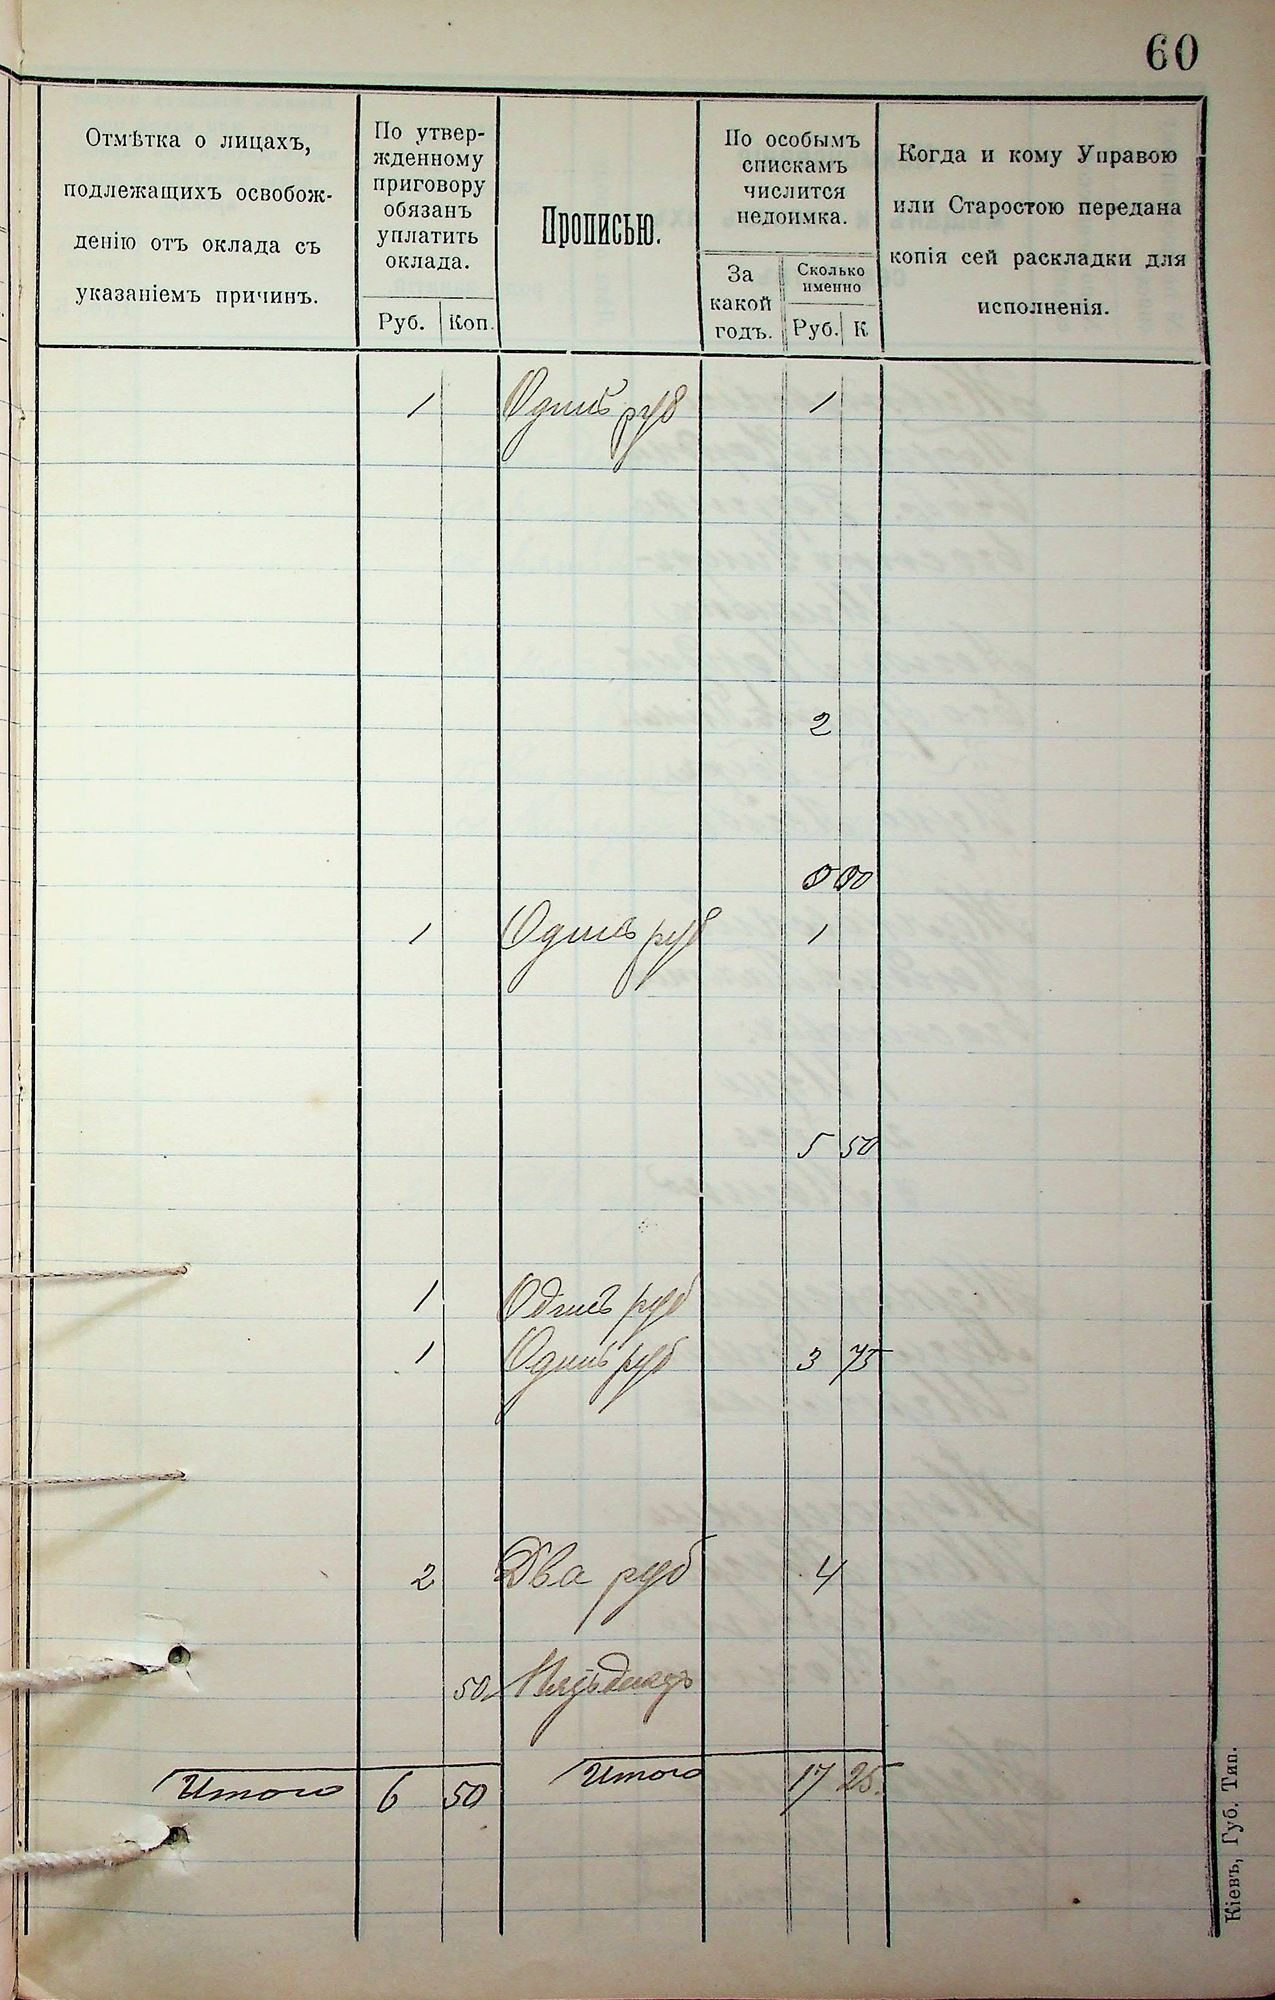 60
Отмѣтка о лицахъ,
подлежащихъ освобож-
денію отъ оклада съ
указаніемъ причинъ.
По утвер-
жденному
приговору
обязанъ
уплатить
оклада.
Руб. Коп.
Прописью.
По особымъ
спискамъ
числится
недоимка.
За
какой
годъ.
Сколько
именно
Руб. К
Когда и кому Управою
или Старостою передана
копія сей раскладки для
исполненія.
1 Одинъ руб 1
2
1 Одинъ руб 1
5 50
1 Одинъ руб
1 Одинъ руб 3 75
2 Два руб 4
50
Итого 6 50 Итого 17 25
Кіевъ, Губ. Тип.